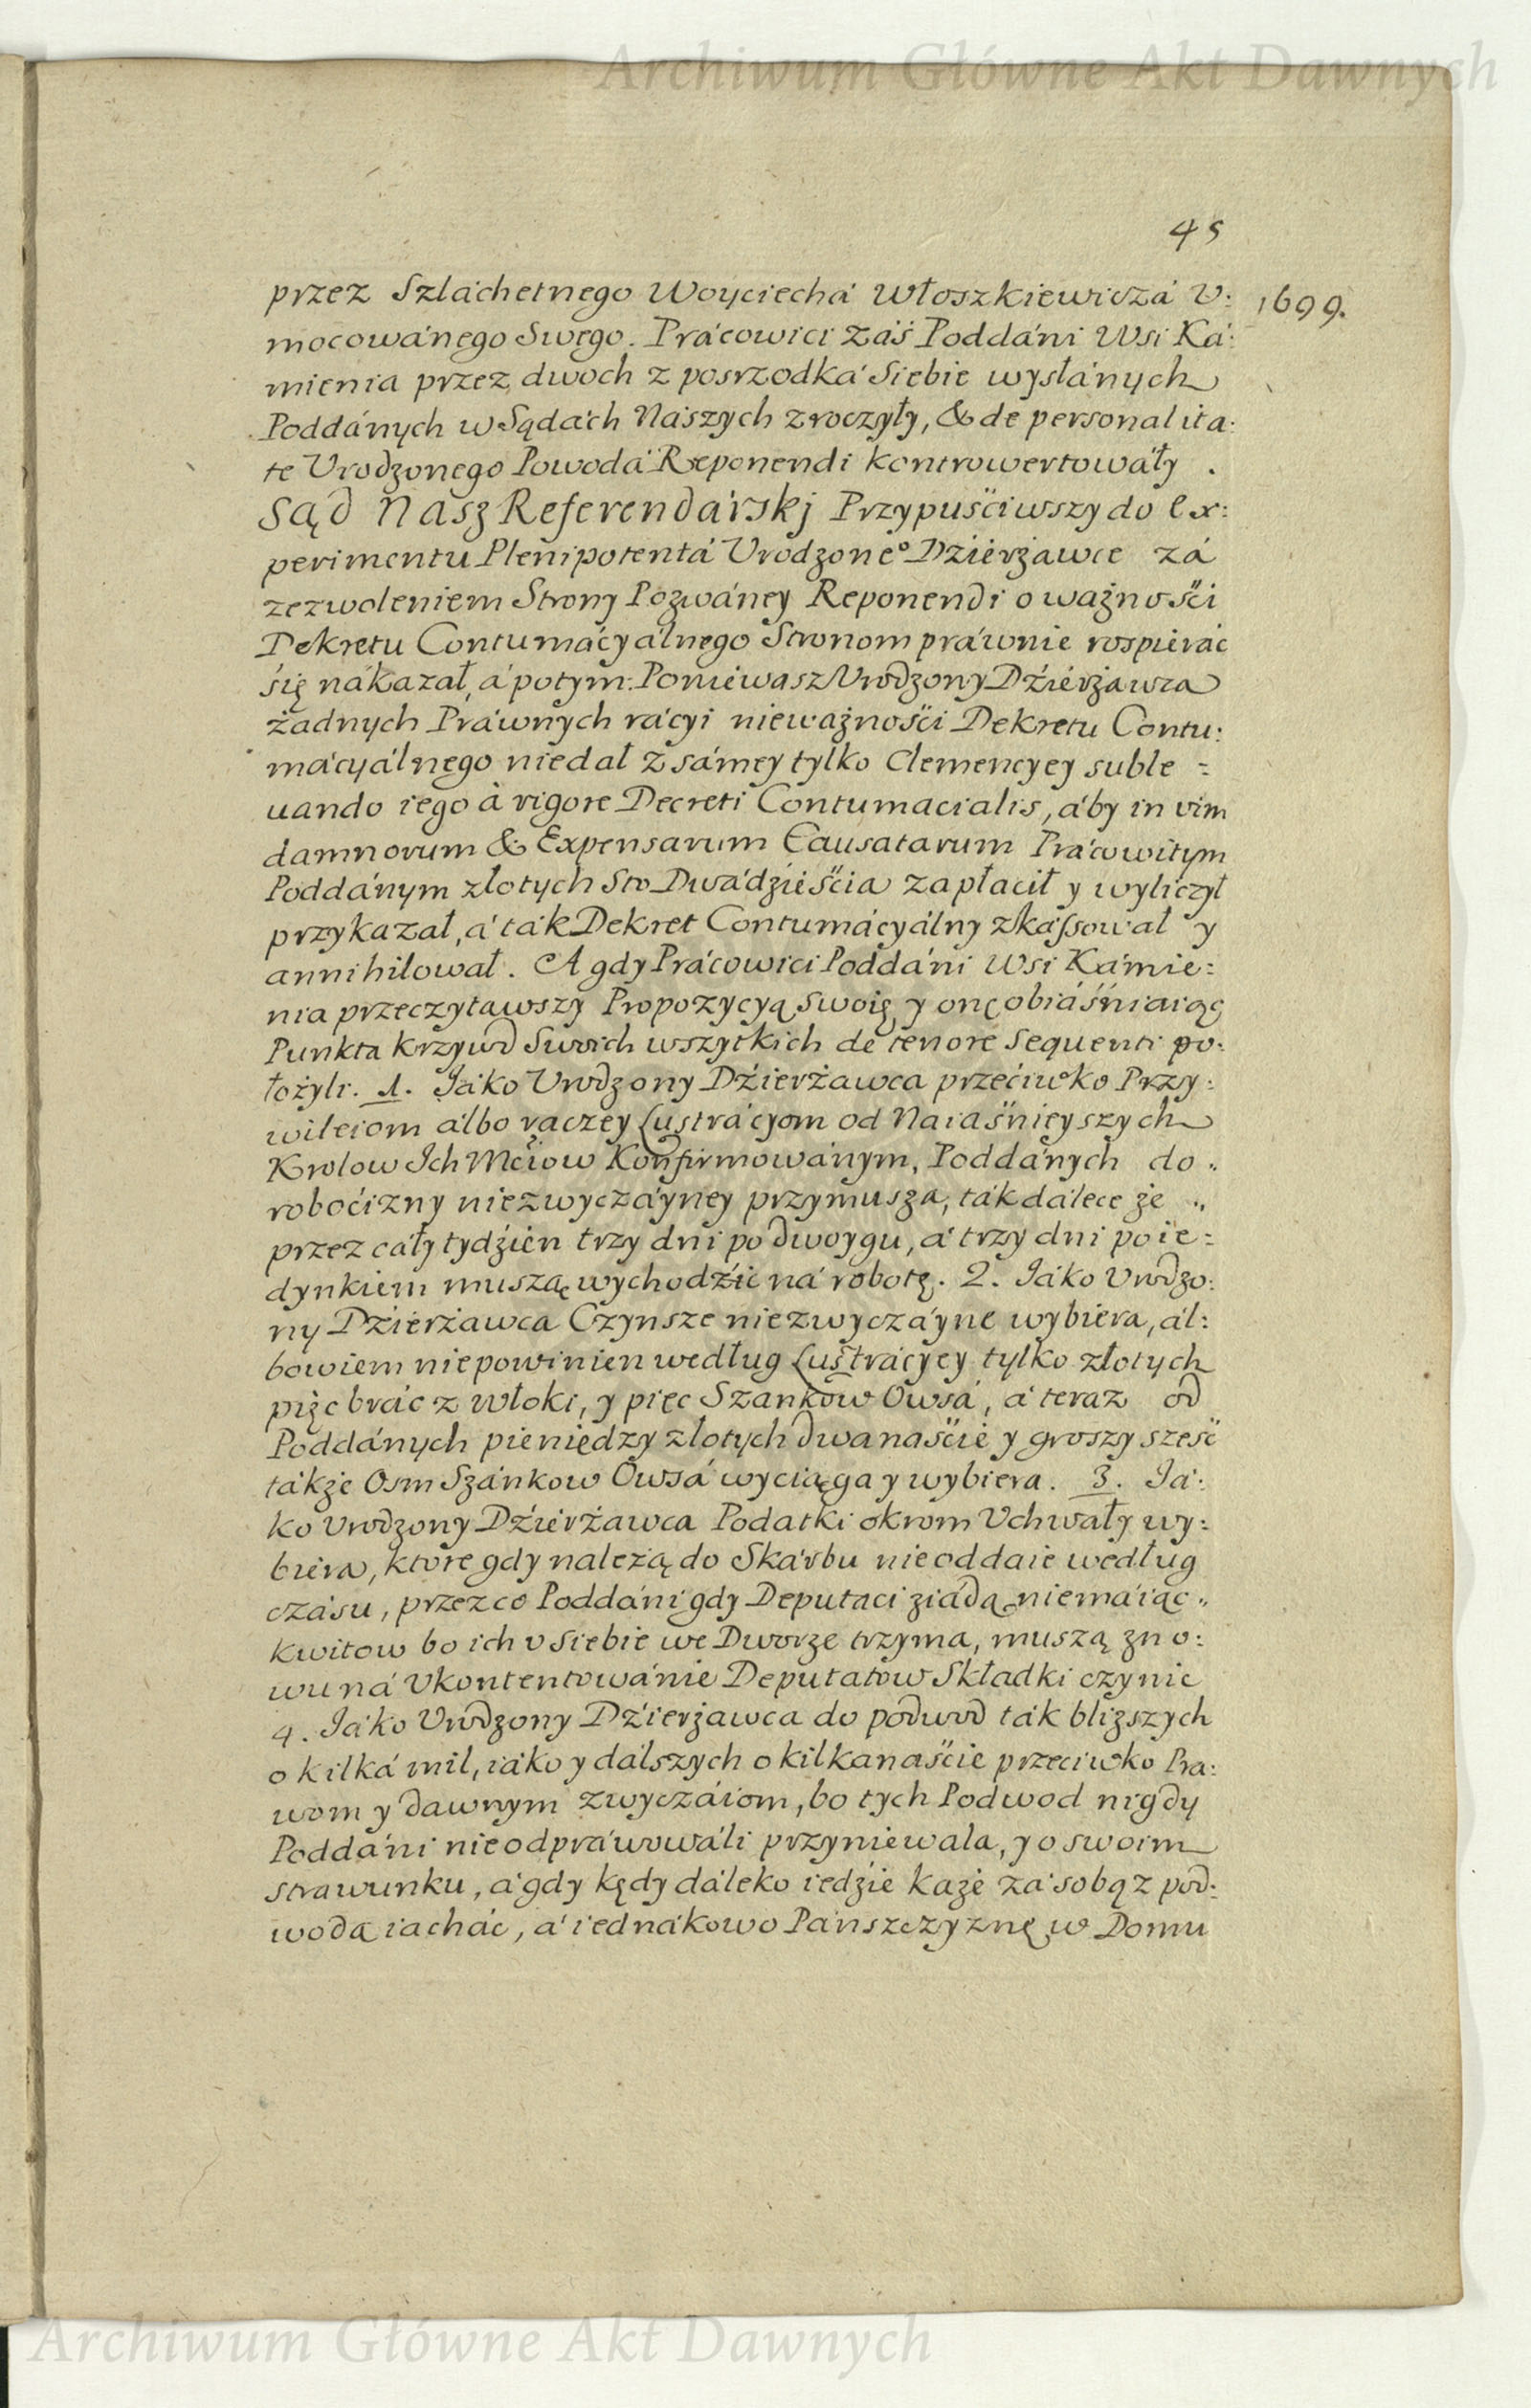 Archiwum Główne Akt Dawnych
45
1699.
przez Szláchetnego Woyciechá Włoszkiewiczá V:
mocowánego Swego. Prácowici záś Poddáni Wsi Ká:
mienia przez dwoch z posrzodká Siebie wysłánych
Poddánych w Sądách Nászych zroczyły, & de personalita:
te Vrodzonego Powodá Reponendi kontrowertowáły.
Sąd Nasz Referendárskj Przypuśćiwszy do ex:
perimentu Plenipotentá Vrodzone° Dzierżawce zá
zezwoleniem Strony Pozwáney Reponendi o ważnośći
Dekretu Contumácyálnego Stronom práwnie rospieráć
się nákazał, á potym: Poniewasz Vrodzony Dźierżawca
żadnych Práwnych rácyi nieważnośći Dekretu Contu:
mácyálnego niedał z sámey tylko Clemencyey suble =
uando iego à rigore Decreti Contumacialis, áby in vim
damnorum & Expensarum Causatarum Prácowitym
Poddánym złotych Sto Dwádzieśćia zapłacił y wyliczył
przykazał, á ták Dekret Contumácyálny zkássował y
annihilował. A gdy Prácowici Poddáni Wsi Kámie:
nia przeczytawszy Propozycyą swoię y onę obiáśniaiąc
Punkta krzywd Swoich wszytkich de tenore sequenti po:
łożyli. 1. Jáko Vrodzony Dźierżawca przećiwko Przy:
wileiom álbo raczey Lustrácyom od Naiaśnieyszych
Krolow Ich Mćiow Konfirmowánym, Poddánych do „
roboćizny niezwyczáyney przymusza, ták dálece że „
przez cały tydźień trzy dni po dwoygu, á trzy dni po ie:
dynkiem muszą wychodźić ná robotę. 2. Jáko Vrodzo:
ny Dźierżawca Czynsze niezwyczáyne wybiera, ál:
bowiem niepowinien według Lustrácyey tylko złotych
pięć bráć z włoki, y pięć Szankow Owsá, á teraz od
Poddánych pieniędzy złotych dwanaśćie y groszy sześć
tákże Osm Szánkow Owsá wyciąga y wybiera. 3. Já:
ko Vrodzony Dźierżawca Podatki okrom Vchwały wy:
biera, ktore gdy należą do Skárbu nieoddaie według
czásu, przez co Poddáni gdy Deputaci ziádą niemáiąc „
kwitow bo ich v siebie we Dworze trzyma, muszą zno:
wu ná Vkontentowánie Deputatow Składki czynić
4. Jáko Vrodzony Dźierżawca do podwod ták bliższych
o kilká mil, iáko y dálszych o kilkanaśćie przeciwko Pra:
wom y dawnym zwyczáiom, bo tych Podwod nigdy
Poddáni nieodpráwowáli przyniewala, y o swoim
strawunku, á gdy kędy dáleko iedzie każe zá sobą z pod:
wodą iácháć, á iednákowo Pánszczyznę w Domu
Archiwum Główne Akt Dawnych